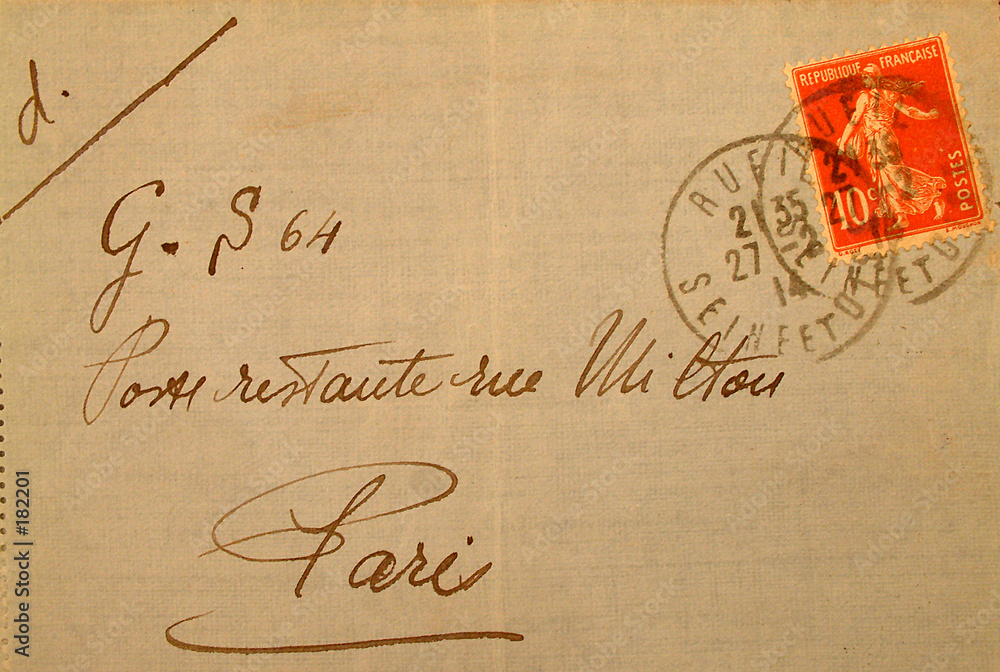 d.
REPUBLIQUE FRANÇAISE
10c POSTES
RUEIL
21 35
27
14
SEINE ET OISE
G. S 64
Poste restante rue Milton
Paris
Adobe Stock | #182201